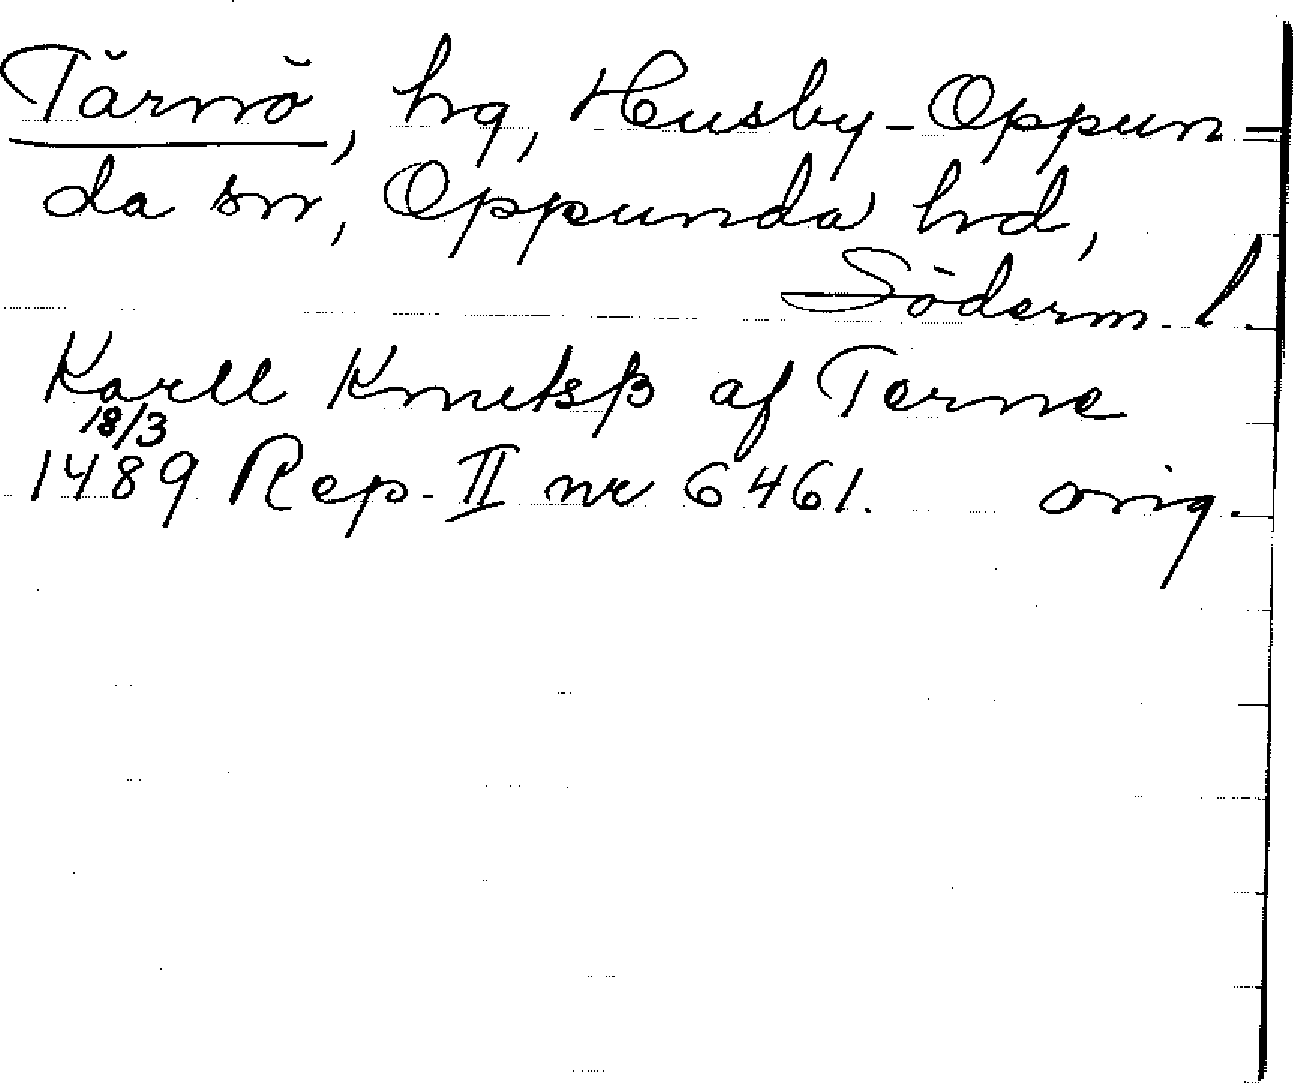 Tärnö, hg, Husby-Oppun=
da sn, Oppunda hd,
Söderm. l.
Karll Knutsß af Terne
18/3
1489 Rep. II nr 6461. orig.